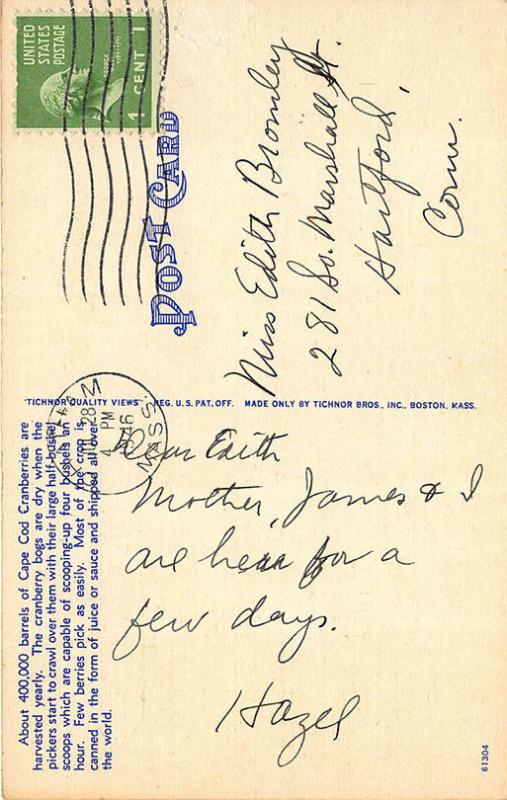 UNITED
STATES
POSTAGE
1 CENT 1
POST CARD
Miss Edith Bromley
281 So. Marshall St.
Hartford,
Conn.
"TICHNOR QUALITY VIEWS" REG. U.S. PAT. OFF. MADE ONLY BY TICHNOR BROS., INC., BOSTON, MASS.
28
4 PM
1946
MASS.
About 400,000 barrels of Cape Cod Cranberries are
harvested yearly. The cranberry bogs are dry when the
pickers start to crawl over them with their large half-bushel
scoops which are capable of scooping-up four bushels an
hour. Few berries pick as easily. Most of the crop is
canned in the form of juice or sauce and shipped all over
the world.
Dear Edith
Mother, James & I
are here for a
few days.
Hazel
61304